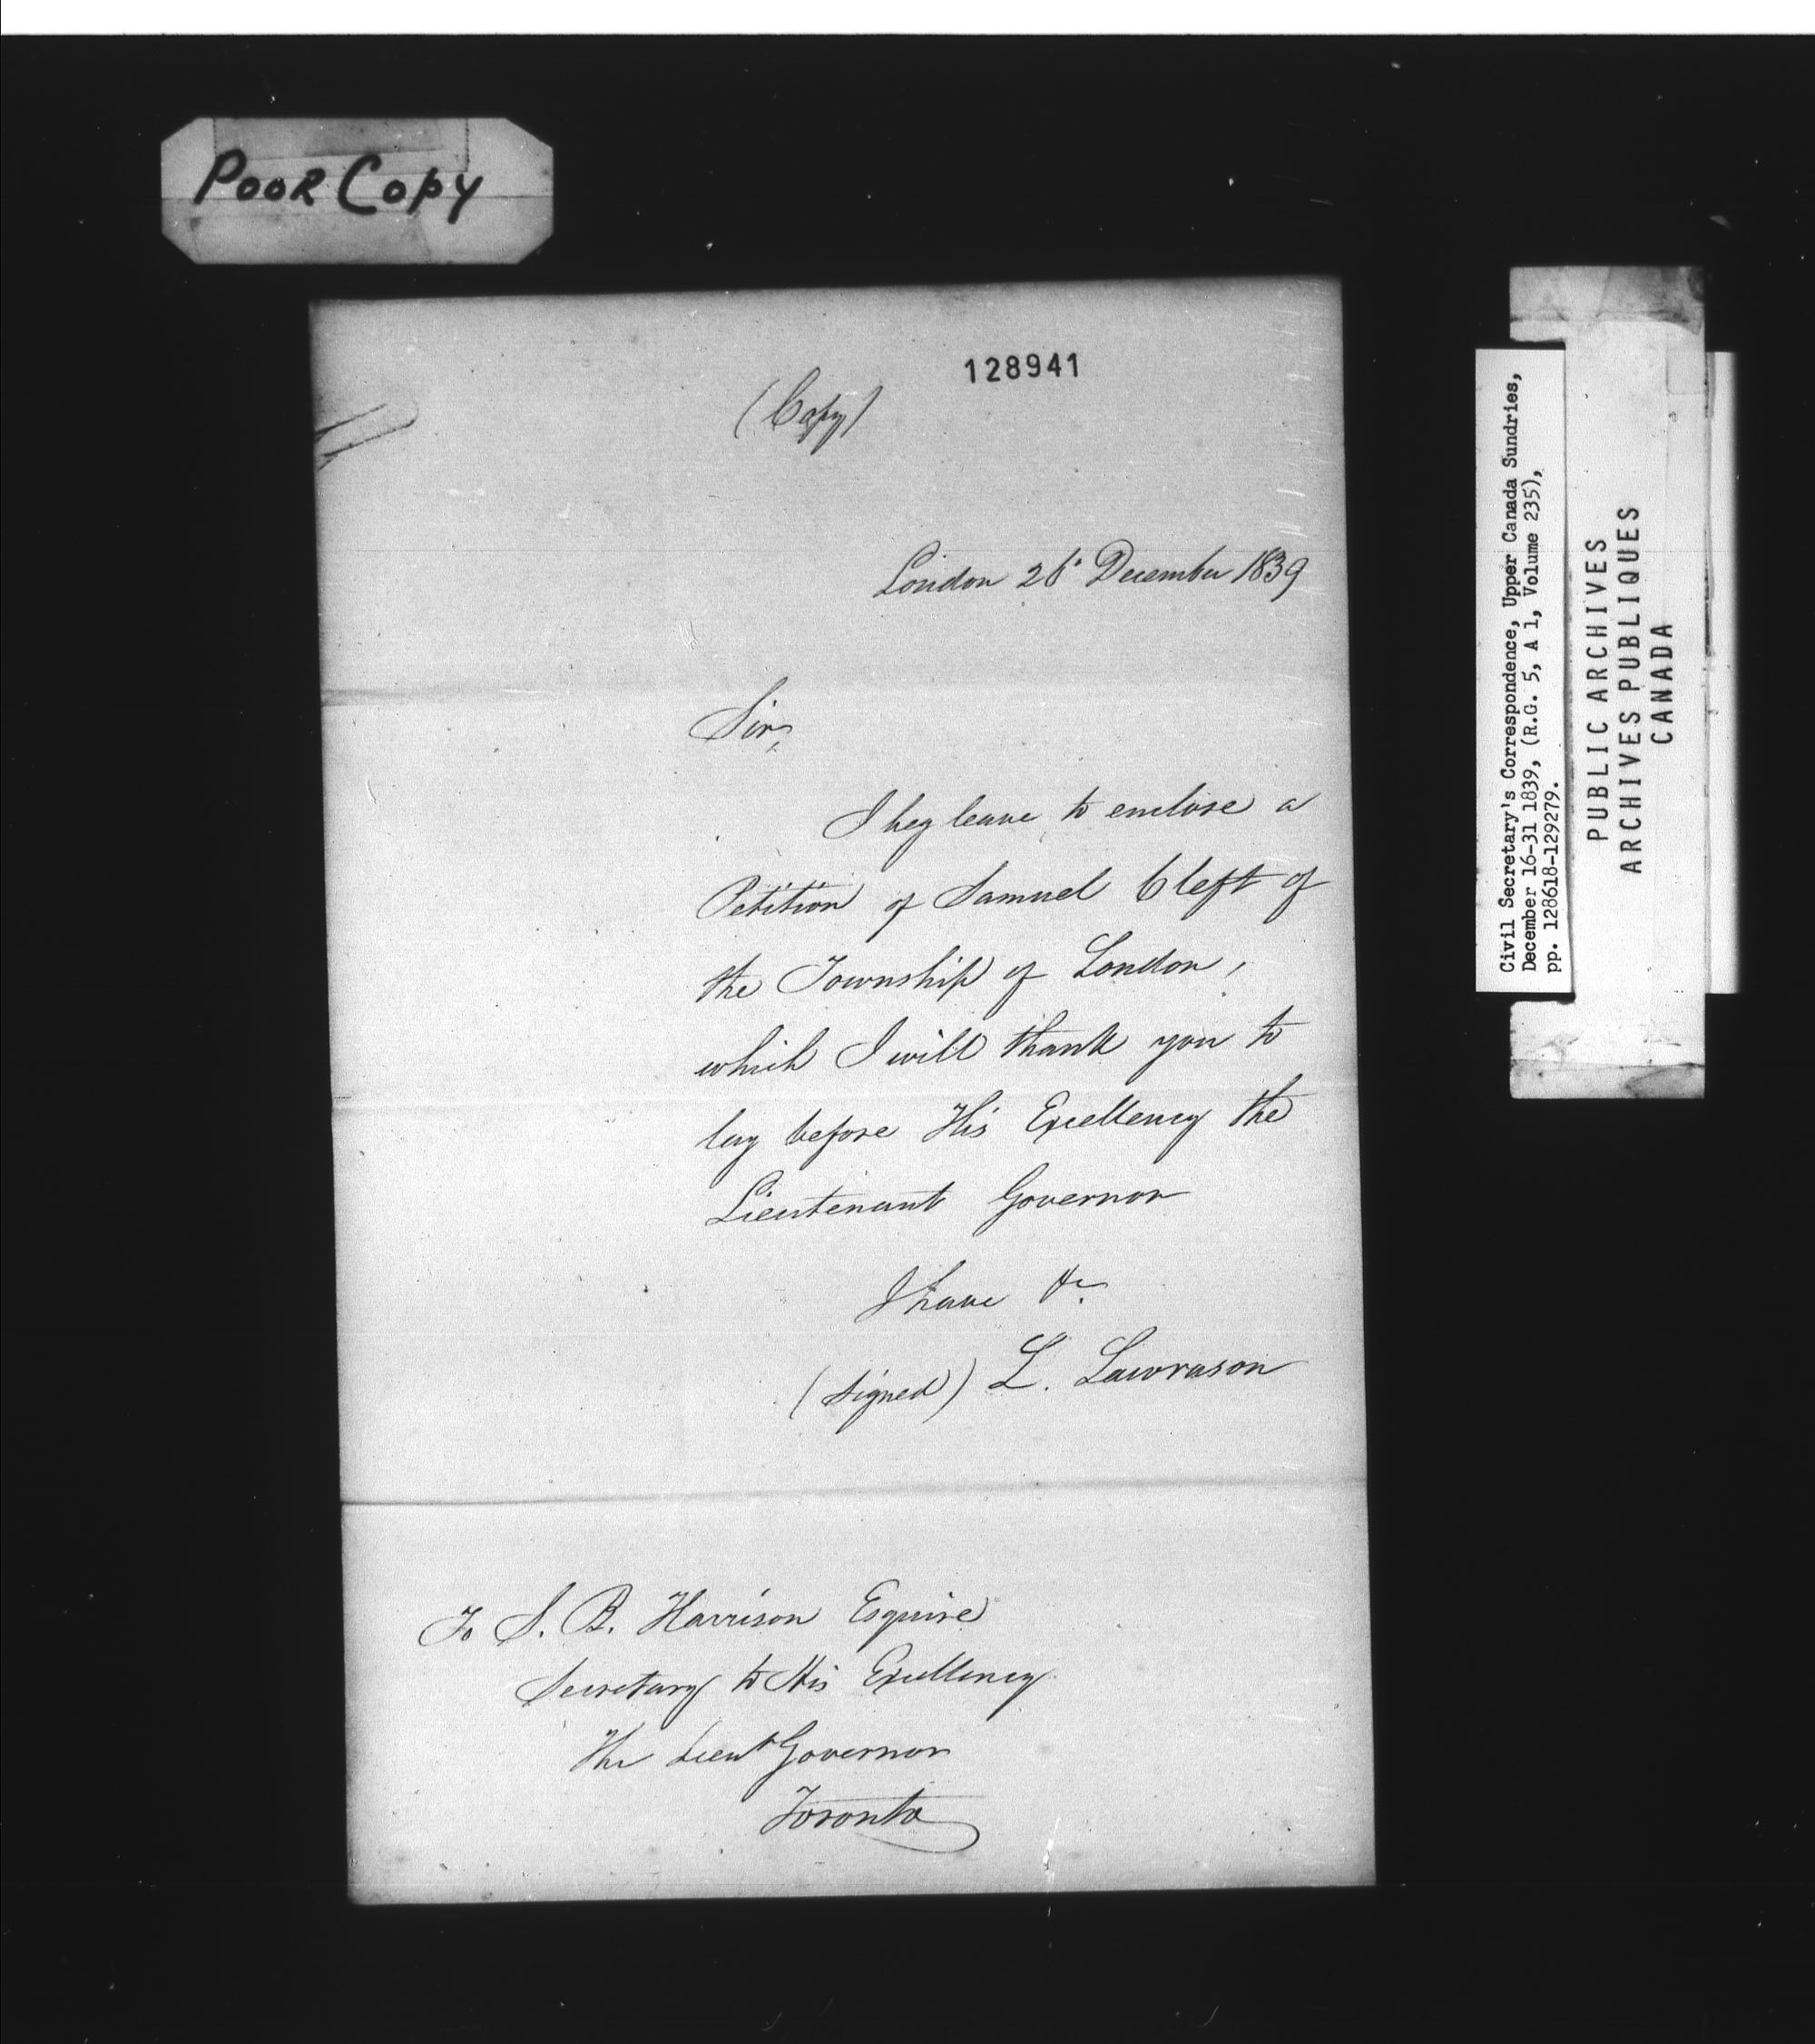 Poor Copy
128941
(Copy)
London 26 December 1839
Sir,
I beg leave to enclose a
Petition of Samuel Cleft of
the Township of London,
which I will thank you to
lay before His Excellency the
Lieutenant Governor
I have &c.
(Signed) L. Lawrason
To S. B. Harrison Esquire
Secretary to His Excellency
The Lieut Governor
Toronto
Civil Secretary's Correspondence, Upper Canada Sundries,
December 16-31 1839, (R.G. 5, A 1, Volume 235),
pp. 128618-129279.
PUBLIC ARCHIVES
ARCHIVES PUBLIQUES
CANADA